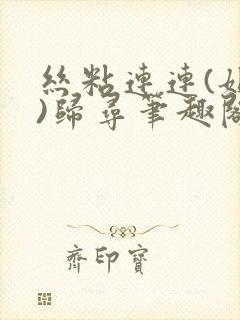 絲粘連連(
)歸尋筆趣閣
齊印寶